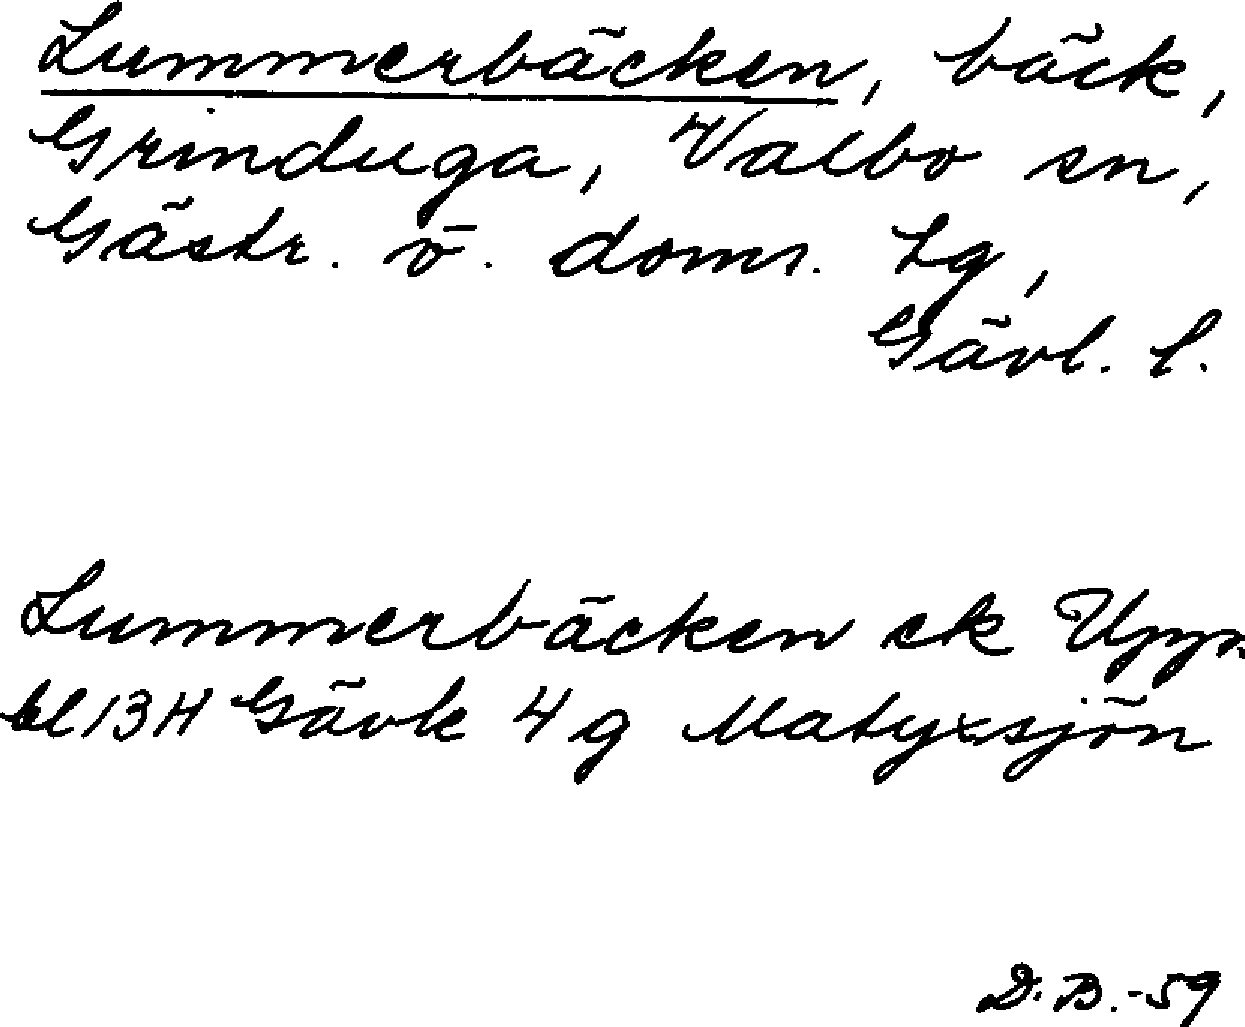 Lummerbäcken, bäck,
Grinduga, Valbo sn,
Gästr. ö. doms. Lg,
Gävl. l.
Lummerbäcken ek Uppm.
bl 13H Gävle 4g Matyxsjön
D. B. -59